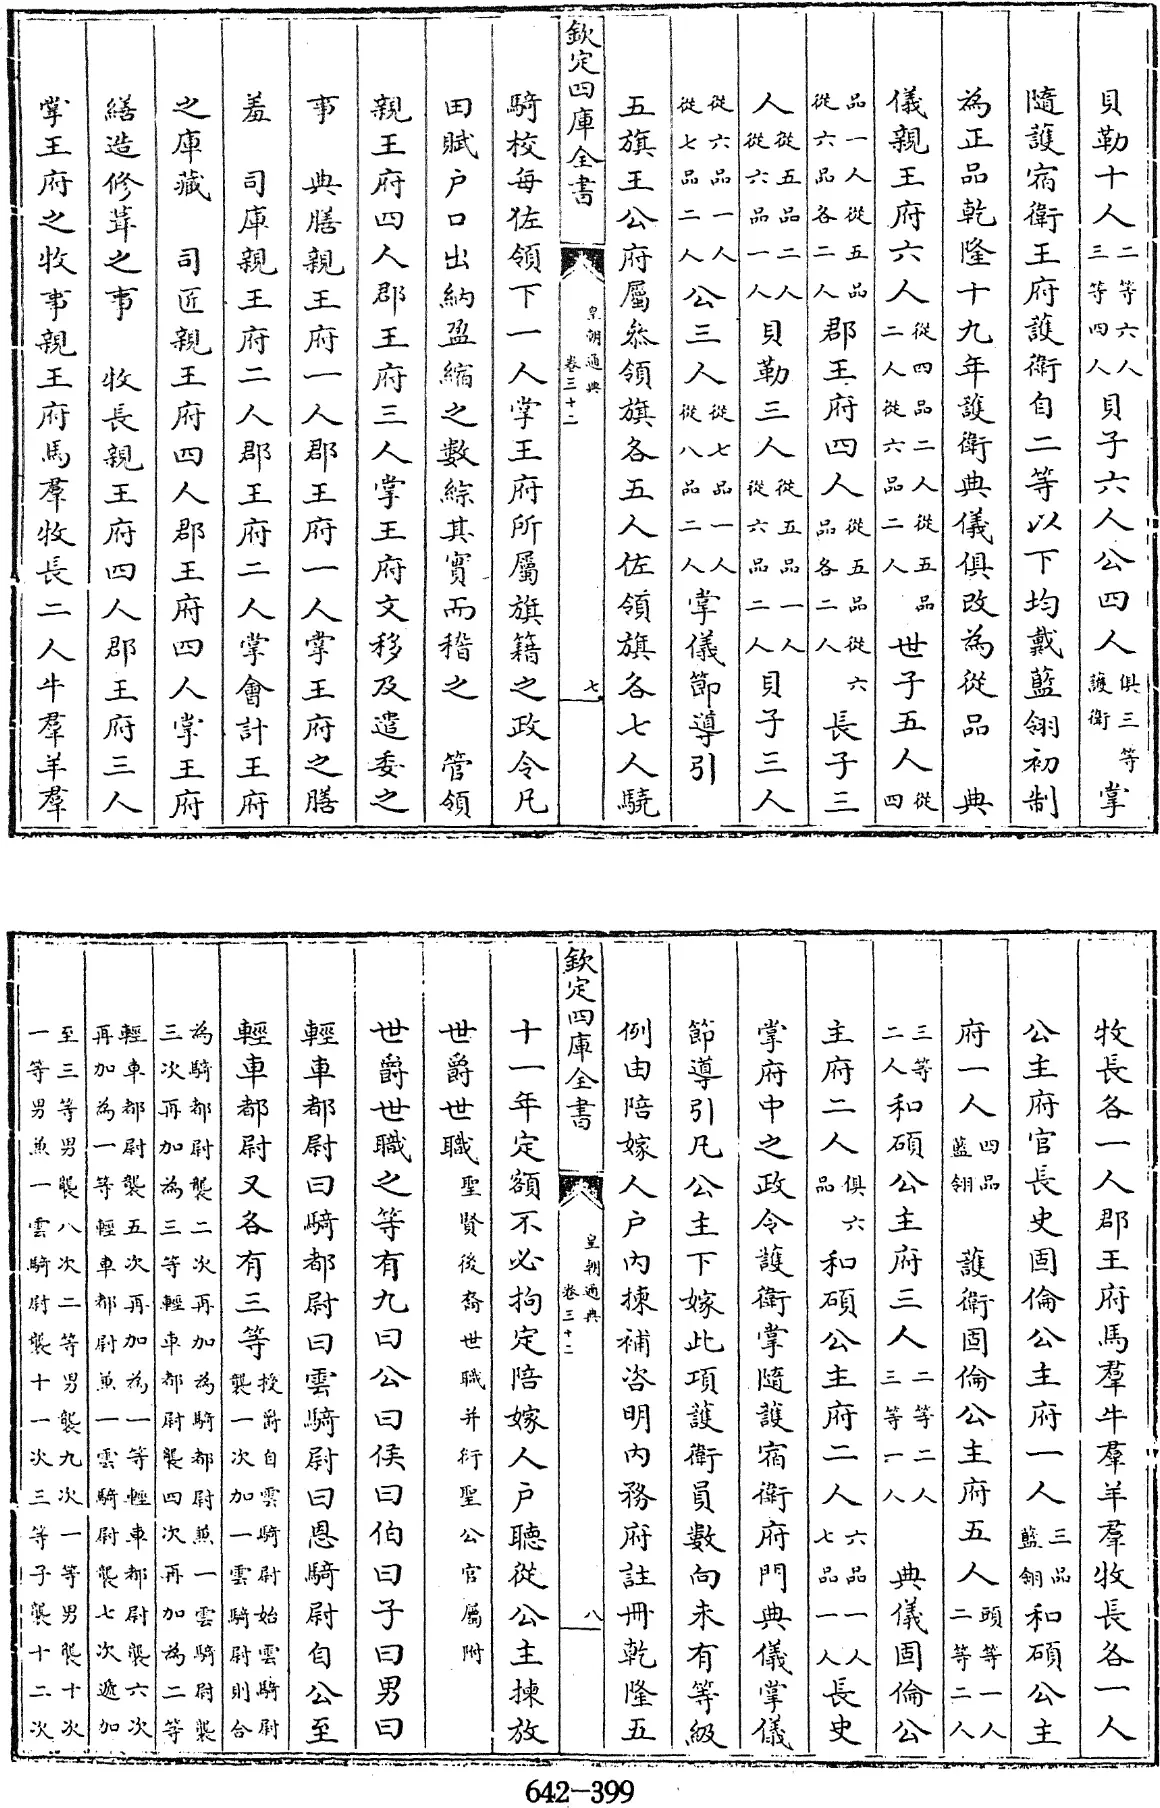 貝勒十人二等六人三等四人貝子六人公四人俱三等護衛掌
隨護宿衛王府護衛自二等以下均戴藍翎初制
為正品乾隆十九年護衛典儀俱改為從品　典
儀親王府六人從四品二人從五品二人從六品二人　世子五人從四
品一人從五品從六品各二人郡王府四人從五品從六品各二人　長子三
人從五品二人從六品一人貝勒三人從五品一人從六品二人貝子三人
從六品一人從七品二人公三人從七品一人從八品二人掌儀節導引
五旗王公府屬叅領旗各五人佐領旗各七人驍
欽定四庫全書　皇朝通典　卷三十二　七
騎校每佐領下一人掌王府所屬旗籍之政令凡
田賦户口出納盈縮之數綜其實而稽之　管領
親王府四人郡王府三人掌王府文移及遣委之
事　典膳親王府一人郡王府一人掌王府之膳
羞　司庫親王府二人郡王府二人掌會計王府
之庫藏　司匠親王府四人郡王府四人掌王府
繕造修葺之事　牧長親王府四人郡王府三人
掌王府之牧事親王府馬羣牧長二人牛羣羊羣
牧長各一人郡王府馬羣牛羣羊羣牧長各一人
公主府官長史固倫公主府一人三品藍翎和碩公主
府一人四品藍翎　護衛固倫公主府五人頭等一人二等二人
三等二人和碩公主府三人二等二人三等一人　典儀固倫公
主府二人俱六品和碩公主府二人六品一人七品一人長史
掌府中之政令護衛掌隨護宿衛府門典儀掌儀
節導引凡公主下嫁此項護衛員數向未有等級
例由陪嫁人户内揀補咨明内務府註冊乾隆五
欽定四庫全書　皇朝通典　卷三十二　八
十一年定額不必拘定陪嫁人户聽從公主揀放
世爵世職聖賢後裔世職并衍聖公官屬附
世爵世職之等有九曰公曰侯曰伯曰子曰男曰
輕車都尉曰騎都尉曰雲騎尉曰恩騎尉自公至
輕車都尉又各有三等授爵自雲騎尉始雲騎尉襲一次加一雲騎尉則合
為騎都尉襲二次再加為騎都尉兼一雲騎尉襲三次再加為三等輕車都尉襲四次再加為二等
輕車都尉襲五次再加為一等輕車都尉襲六次再加為一等輕車都尉兼一雲騎尉襲七次遞加
至三等男襲八次二等男襲九次一等男襲十次一等男兼一雲騎尉襲十一次三等子襲十二次
642-399